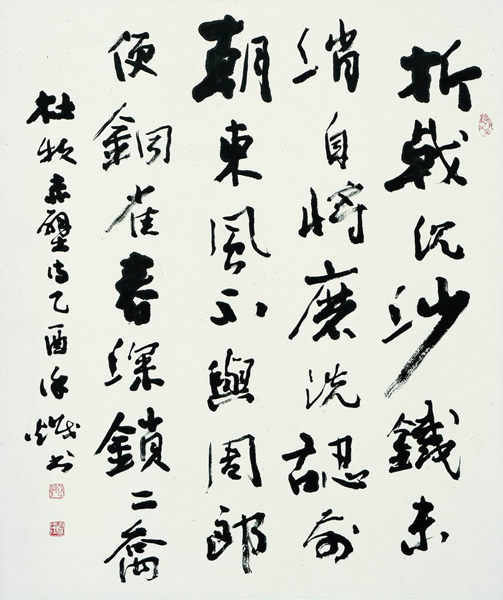 折戟沉沙鐵未
銷自將磨洗認前
朝東風不與周郎
便銅雀春深鎖二喬
杜牧赤壁诗乙酉书